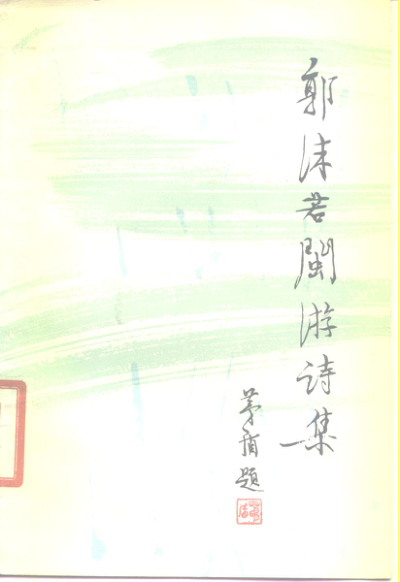 郭沫若闽游诗集
茅盾题